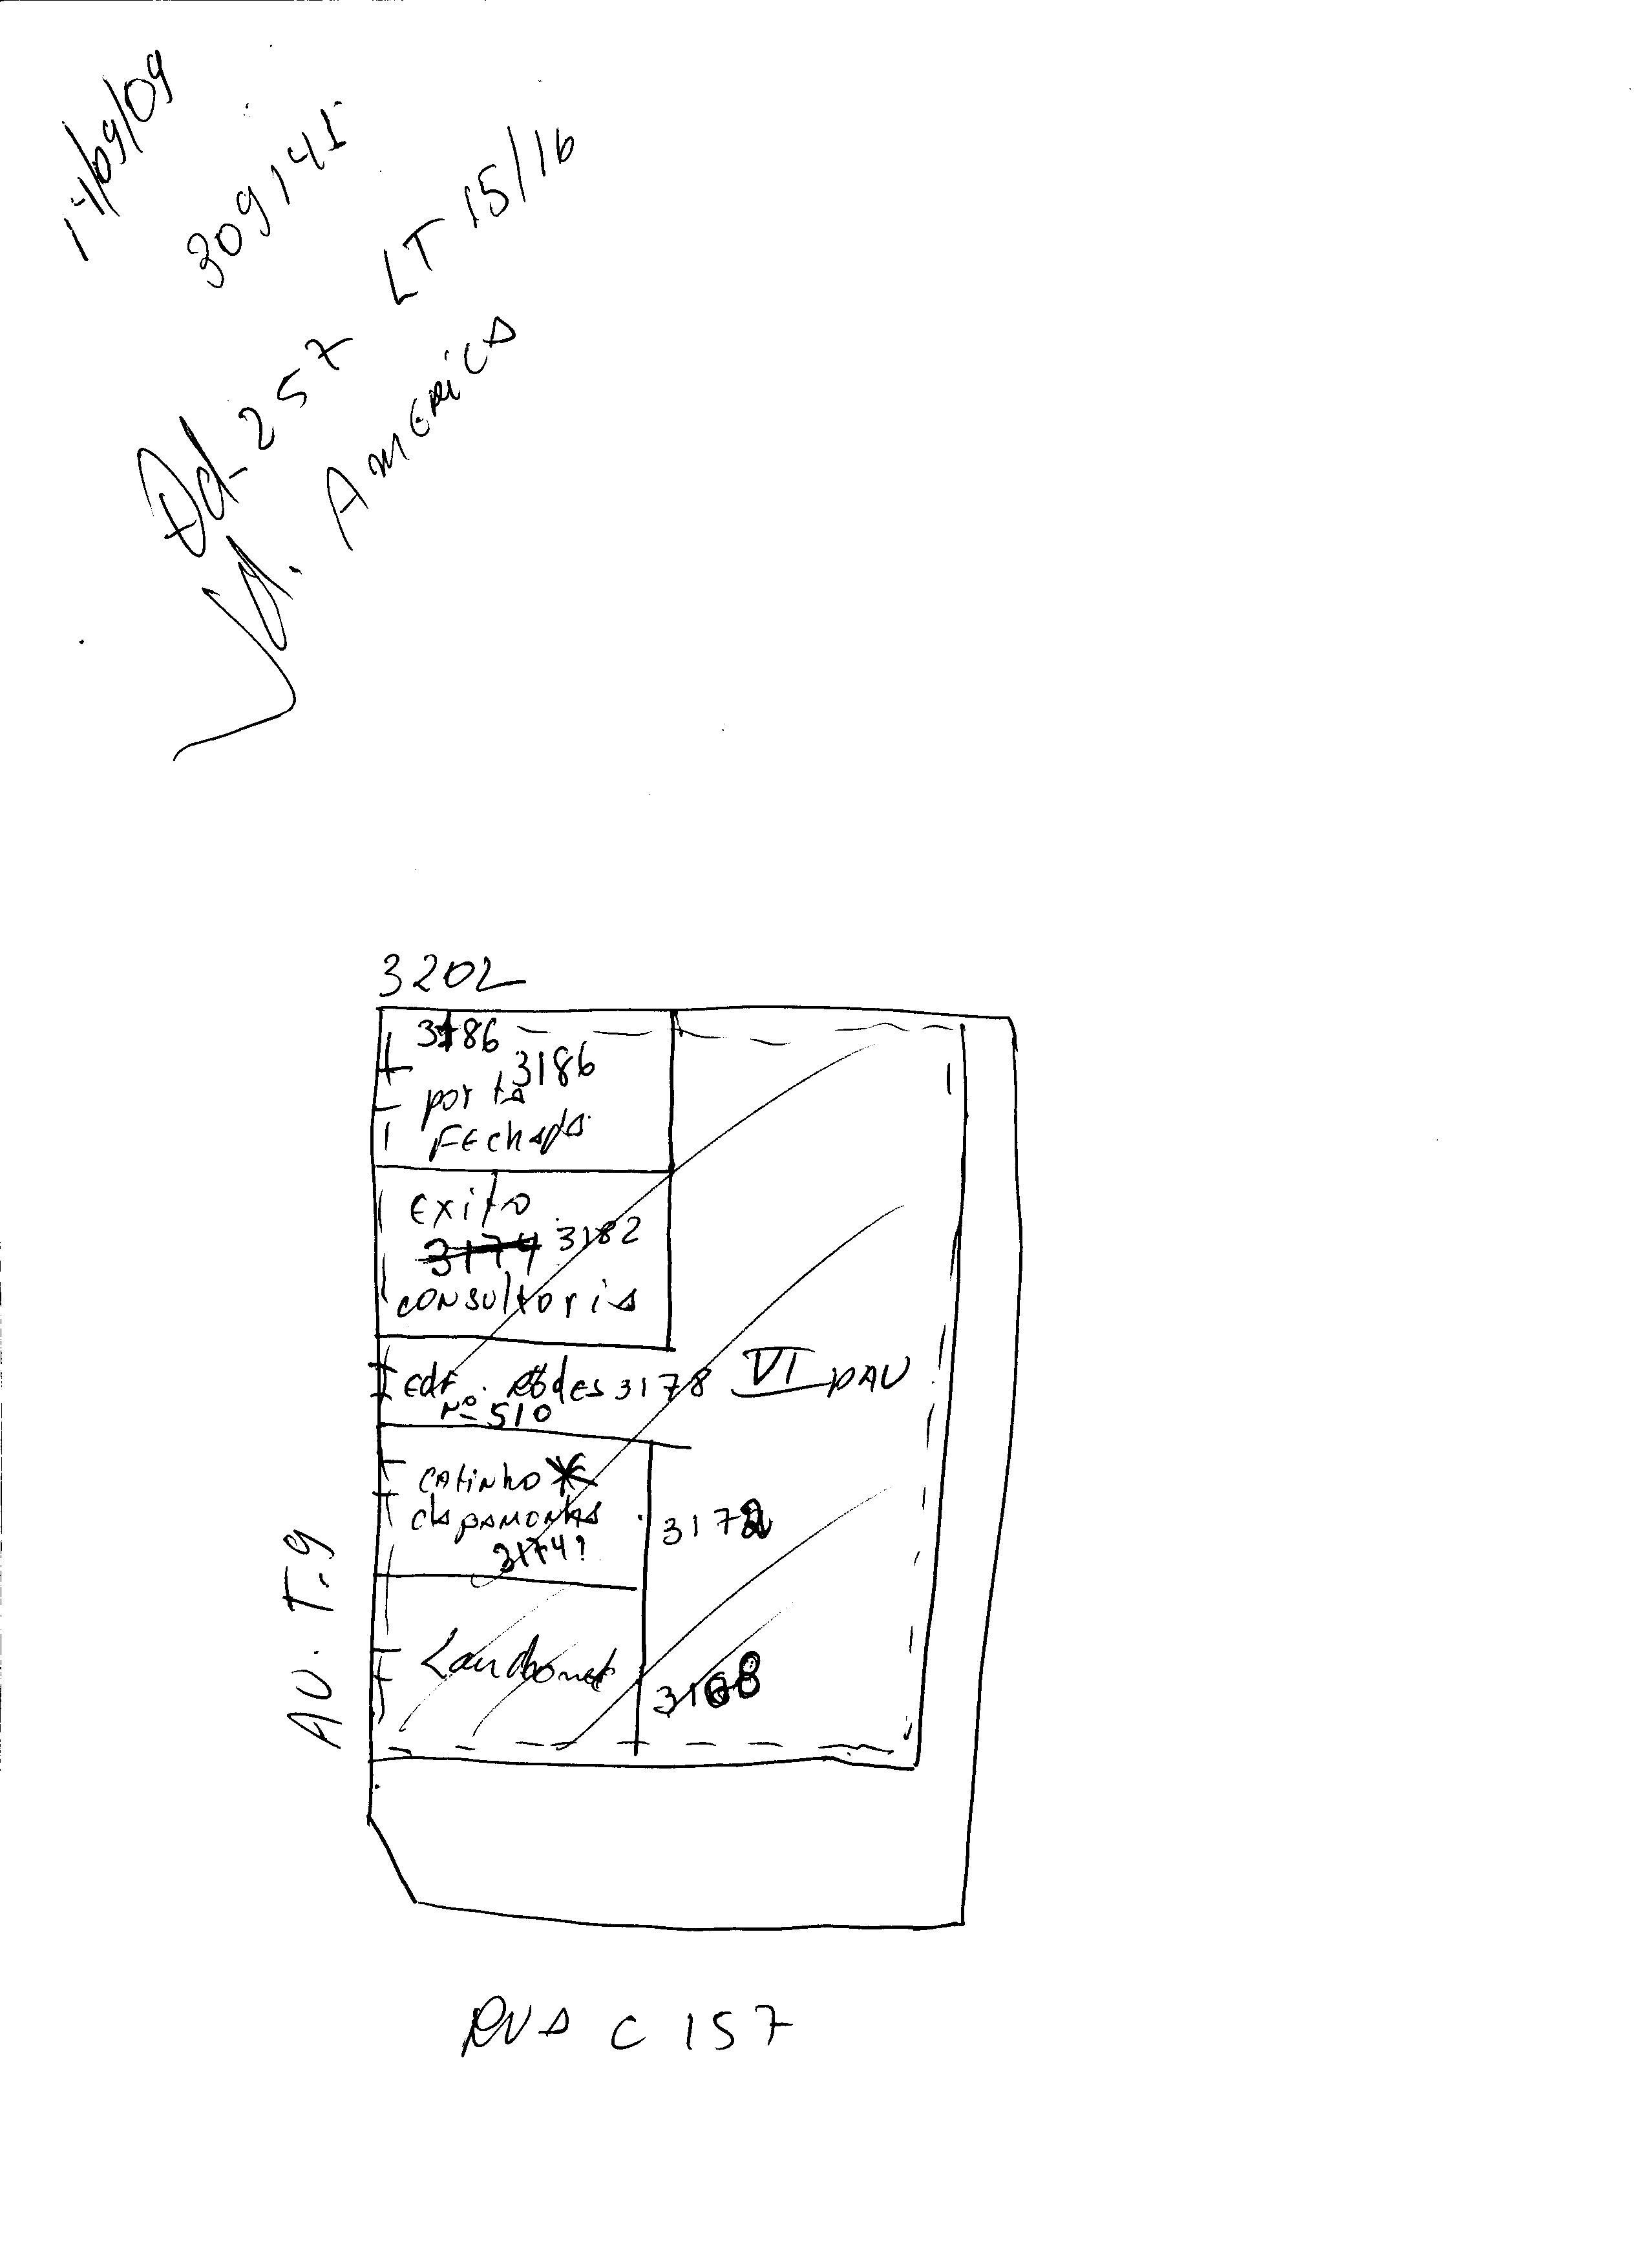 17/09/09
309141
Qd-257 LT 15/16
Jd. America
3202
3186
3186
porta
FEchada
Exito
3174 3182
consultoria
Edf. 3178 VI PAV
Nº 510
CATINHO
da pamonha
3174?
3172
Lanchonet
3168
AV. T.9
RUA C 157